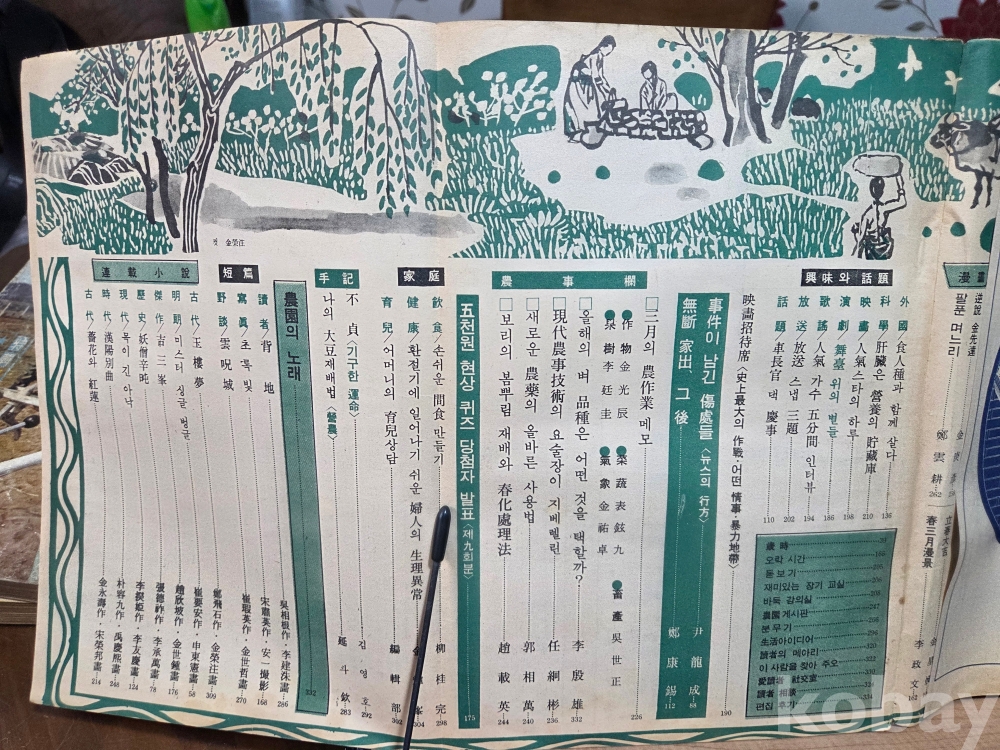 컷 金榮注
漫畵
逆說 金先達
팔푼 며느리
鄭雲耕 262
立春大吉
春三月漫景
李政文 162
興味와 話題
外國/食人種과 함께 살다 136
科學/肝臟은 營養의 貯藏庫 210
映畵/人氣스타의 하루 98
演劇/舞臺 위의 벗들 186
歌謠/人氣 가수 五分間 인터뷰 194
放送/放送 스냅 三題 202
話題/車長官 댁 慶事 110
映畵招待席〈史上最大의 作戰·어떤 情事·暴力地帶〉 190
歲時
오락 시간
돋보기
재미있는 장기 교실
바둑 강의실
農園게시판
분무기
生活아이디어
讀者의 메아리
이 사람을 찾아 주오
愛讀者 社交室
讀者 相談
편집 후기
事件이 남긴 傷處들〈뉴스의 行方〉 尹龍成 88
無斷 家出、그 後 鄭康錫 112
農事欄
□三月의 農作業 메모 226
●作物 金光辰 ●菜蔬 表鉉九 ●畜產 吳世正
●綠樹 李廷圭 ●氣象 金祐卓
□올해의 벼 品種은 어떤 것을 택할까? 李殷雄 332
□現代農事技術의 요술장이 지베렐린 任綱彬 236
□새로운 農藥의 올바른 사용법 郭相萬 240
□보리의 봄뿌림 재배와 春化處理法 趙載英 244
五천원 현상 퀴즈 당첨자 발표〈제九회분〉 175
家庭
飮食/손쉬운 間食 만들기 柳桂完 298
健康/환절기에 일어나기 쉬운 婦人의 生理異常 304
育兒/어머니의 育兒상담 編輯部 302
手記
不貞〈기구한 運命〉 김영호 292
나의 大豆재배법〈營農〉 延斗欽 283
農園의 노래 332
短篇
讀者/背地 吳相根作·李建洙畵 286
寫眞/초록빛 宋肅英作·安一撮影 168
野談/雲呪城 崔瑕英作·金世哲畵 270
連載小說
古代/玉樓夢 鄭飛石作·金榮注畵 309
明朗/미스터 싱글벙글 崔要安作·申東憲畵 58
傑作/吉三峯 趙欣坡作·金世鍾畵 176
歷史/妖僧辛旽 張德祚作·李承萬畵 78
現代/목이 긴 아낙 李揆姬作·李友慶畵 124
時代/漢陽別曲 朴容九作·禹慶熙畵 248
古代/薔花와 紅蓮 金永壽作·宋榮邦畵 214
kobay